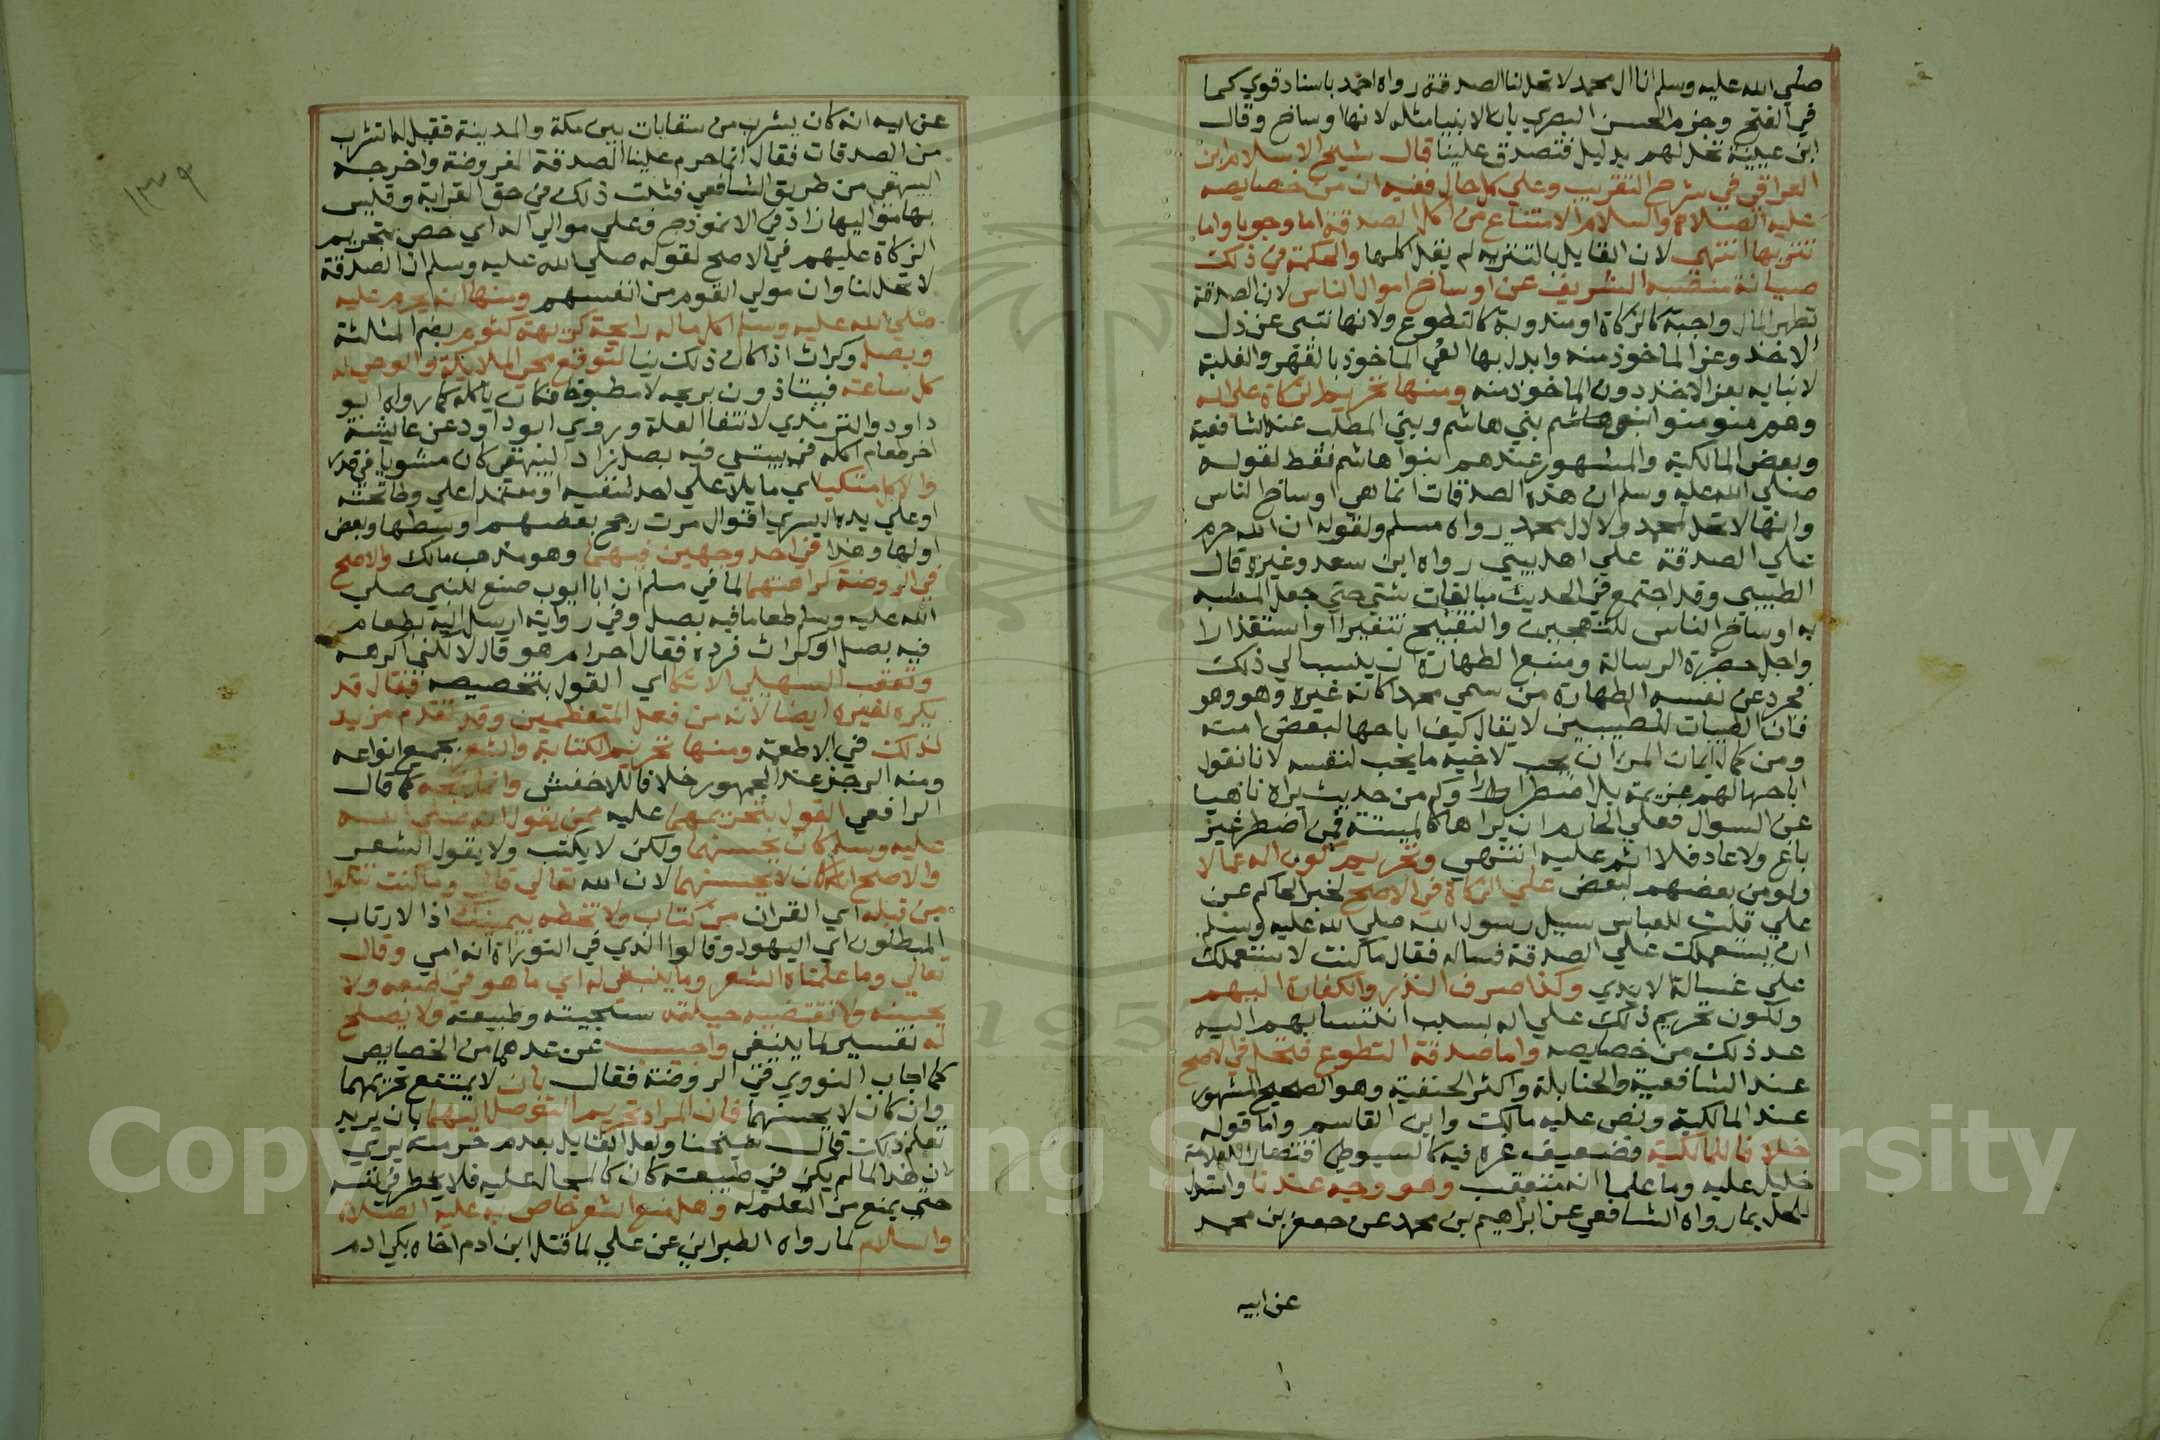 صلي الله عليه وسلم انا ال محمد لا تحل لنا الصدقة رواه احمد باسناد قوي كما
في الفتح وجزم الحسن البصري بان الانبيا مثله لانها اوساخ وقال
ابن عيينة تحل لهم بدليل فتصدق علينا قال شيخ الاسلام ابن
العراقي في شرح التقريب وعلي كل حال ففيه ان من خصايصه
عليه الصلاة والسلام الامتناع من اكل الصدقة اما وجوبا واما
تنزيها انتهي لان القايل بالتنزيه لم يقل كلها والحكمة في ذلك
صيانة منصبه الشريف عن اوساخ اموال الناس لان الصدقة
تطهر المال واجبة كالزكاة او مندوبة كالتطوع ولانها تنبي عن ذل
الاخذ وعز الماخوذ منه وابدل بها الفي الماخوذ بالقهر والغلبة
لانبايه بعز الاخذ دون الماخوذ منه ومنها تحريم الزكاة علي اله
وهم مؤمنوا بني هاشم وبني المطلب عند الشافعية
وبعض المالكية والمشهور عندهم بنوا هاشم فقط لقوله
صلي الله عليه وسلم ان هذه الصدقات انما هي اوساخ الناس
وانها لا تحل لمحمد ولا لال محمد رواه مسلم ولقوله ان الله حرم
علي الصدقة علي اهل بيتي رواه ابن سعد وغيره قال
الطيبي وقد اجتمع في الحديث مبالغات شتي حتي جعل المشبه
به اوساخ الناس للتهجين والتقبيح تنفيرا واستقذارا
واجل حضرة الرسالة ومنبع الطهارة ان ينسب الي ذلك
فجرد عن نفسه الطهارة من سمي محمدا كانه غيره وهو وهو
فان الطيبات للطيبين لا يقال كيف اباحها لبعض امته
ومن كمال ايمان المرء ان يحب لاخيه ما يحب لنفسه لانا نقول
اباحها لهم عزيمة بل اضطرارا وكم من حديث يراه ناهيا
عن السوال فعلي الحازم ان يراها كالميتة فمن اضطر غير
باغ ولا عاد فلا اثم عليه انتهي وتحريم كون اله عمالا
ولو من بعضهم لبعض علي الزكاة في الاصح لخبر الحاكم عن
علي قلت للعباس سل رسول الله صلي الله عليه وسلم
ان يستعملك علي الصدقة فساله فقال ما كنت لاستعملك
علي غسالة الايدي وكذا صرف النذر والكفارة اليهم
ولكون تحريم ذلك علي اله بسبب انتسابهم اليه
عد ذلك من خصايصه واما صدقة التطوع فتحل في الاصح
عند الشافعية والحنابلة واكثر الحنفية وهو الصحيح المشهور
عند المالكية ونص عليه مالك وابن القاسم واما قوله
خلافا للمالكية فضعيف غره فيه كالسيوطي اقتصار العلامة
خليل عليه وما علما انه متعقب وهو وجه عندنا واستدل
للحل بما رواه الشافعي عن ابراهيم بن محمد عن جعفر بن محمد
عن ابيه
عن ابيه انه كان يشرب من سقايات بين مكة والمدينة فقيل له اتشرب
من الصدقات فقال انما حرم علينا الصدقة المفروضة واخرجه
البيهقي من طريق الشافعي فثبت ذلك في حق القرابة وقيس
بها مواليها زاد في الانموذج وعلي موالي اله اي خص بتحريم
الزكاة عليهم في الاصح لقوله صلي الله عليه وسلم ان الصدقة
لا تحل لنا وان مولي القوم من انفسهم ومنها انه يحرم عليه
صلي الله عليه وسلم اكل ماله رايحة كريهة كثوم بضم المثلثة
وبصل وكراث اذا كان ذلك نيا لتوقع مجي الملايكة والوحي له
كل ساعة فيتاذون بريحه لا مطبوخا فكان ياكله كما رواه ابو
داود والترمذي لانتفا العلة وروي ابو داود عن عايشة
اخر طعام اكله في بيتي فيه بصل زاد البيهقي كان مشويا في قدر
والاكل متكيا اي مايلا علي احد شقيه او معتمدا علي وطا تحته
او علي يده اليسري اقوال مرت رجح بعضهم اوسطها وبعض
اولها وهذا في احد وجهين فيهما وهو مذهب مالك والاصح
في الروضة كراهتهما لما في مسلم ان ابا ايوب صنع للنبي صلي
الله عليه وسلم طعاما فيه بصل وفي رواية ارسل اليه بطعام
فيه بصل او كراث فرده فقال احرام هو قال لا لكني اكرهه
وتعقب السهيلي الاتكا اي القول بتخصيصه فقال قد
يكره لغيره ايضا لانه من فعل المتعظمين وقد تقدم مزيد
لذلك في الاطعمة ومنها تحريم الكتابة والشعر بجميع انواعه
ومنه الرجز عند الجمهور خلافا للاخفش وانما يتجه كما قال
الرافعي القول بتحريمهما عليه ممن يقول انه صلي الله
عليه وسلم كان يحسنهما ولكن لا يكتب ولا يقول الشعر
والاصح انه كان لا يحسنهما لان الله تعالي قال وما كنت تتلوا
من قبله اي القران من كتاب ولا تخطه بيمينك اذا لارتاب
المبطلون اي اليهود وقالوا الذي في التوراة انه امي وقال
تعالي وما علمناه الشعر وما ينبغي له اي ما هو في طبعه ولا
يحسنه ولا تقتضيه جبلته سجيته وطبيعته ولا يصلح
له تفسير لما ينبغي واجيب عن عدهما من الخصايص
كما اجاب النووي في الروضة فقال بان لا يمتنع تحريمهما
وان كان لا يحسنهما فان المراد تحريم التوصل اليهما بان يريد
تعلم ذلك قال شيخنا ولعل القايل بعدم حرمته يري
ان هذا لما لم يكن في طبيعته كان كالمحال عليه فلا يخطر في نفسه
حتي يمنع من التعلم له وهل منع الشعر خاص به عليه الصلاة
والسلام لما رواه الطبراني عن علي لما قتل ابن ادم اخاه بكي ادم
١٣٩
Copyright © King Saud University
1957